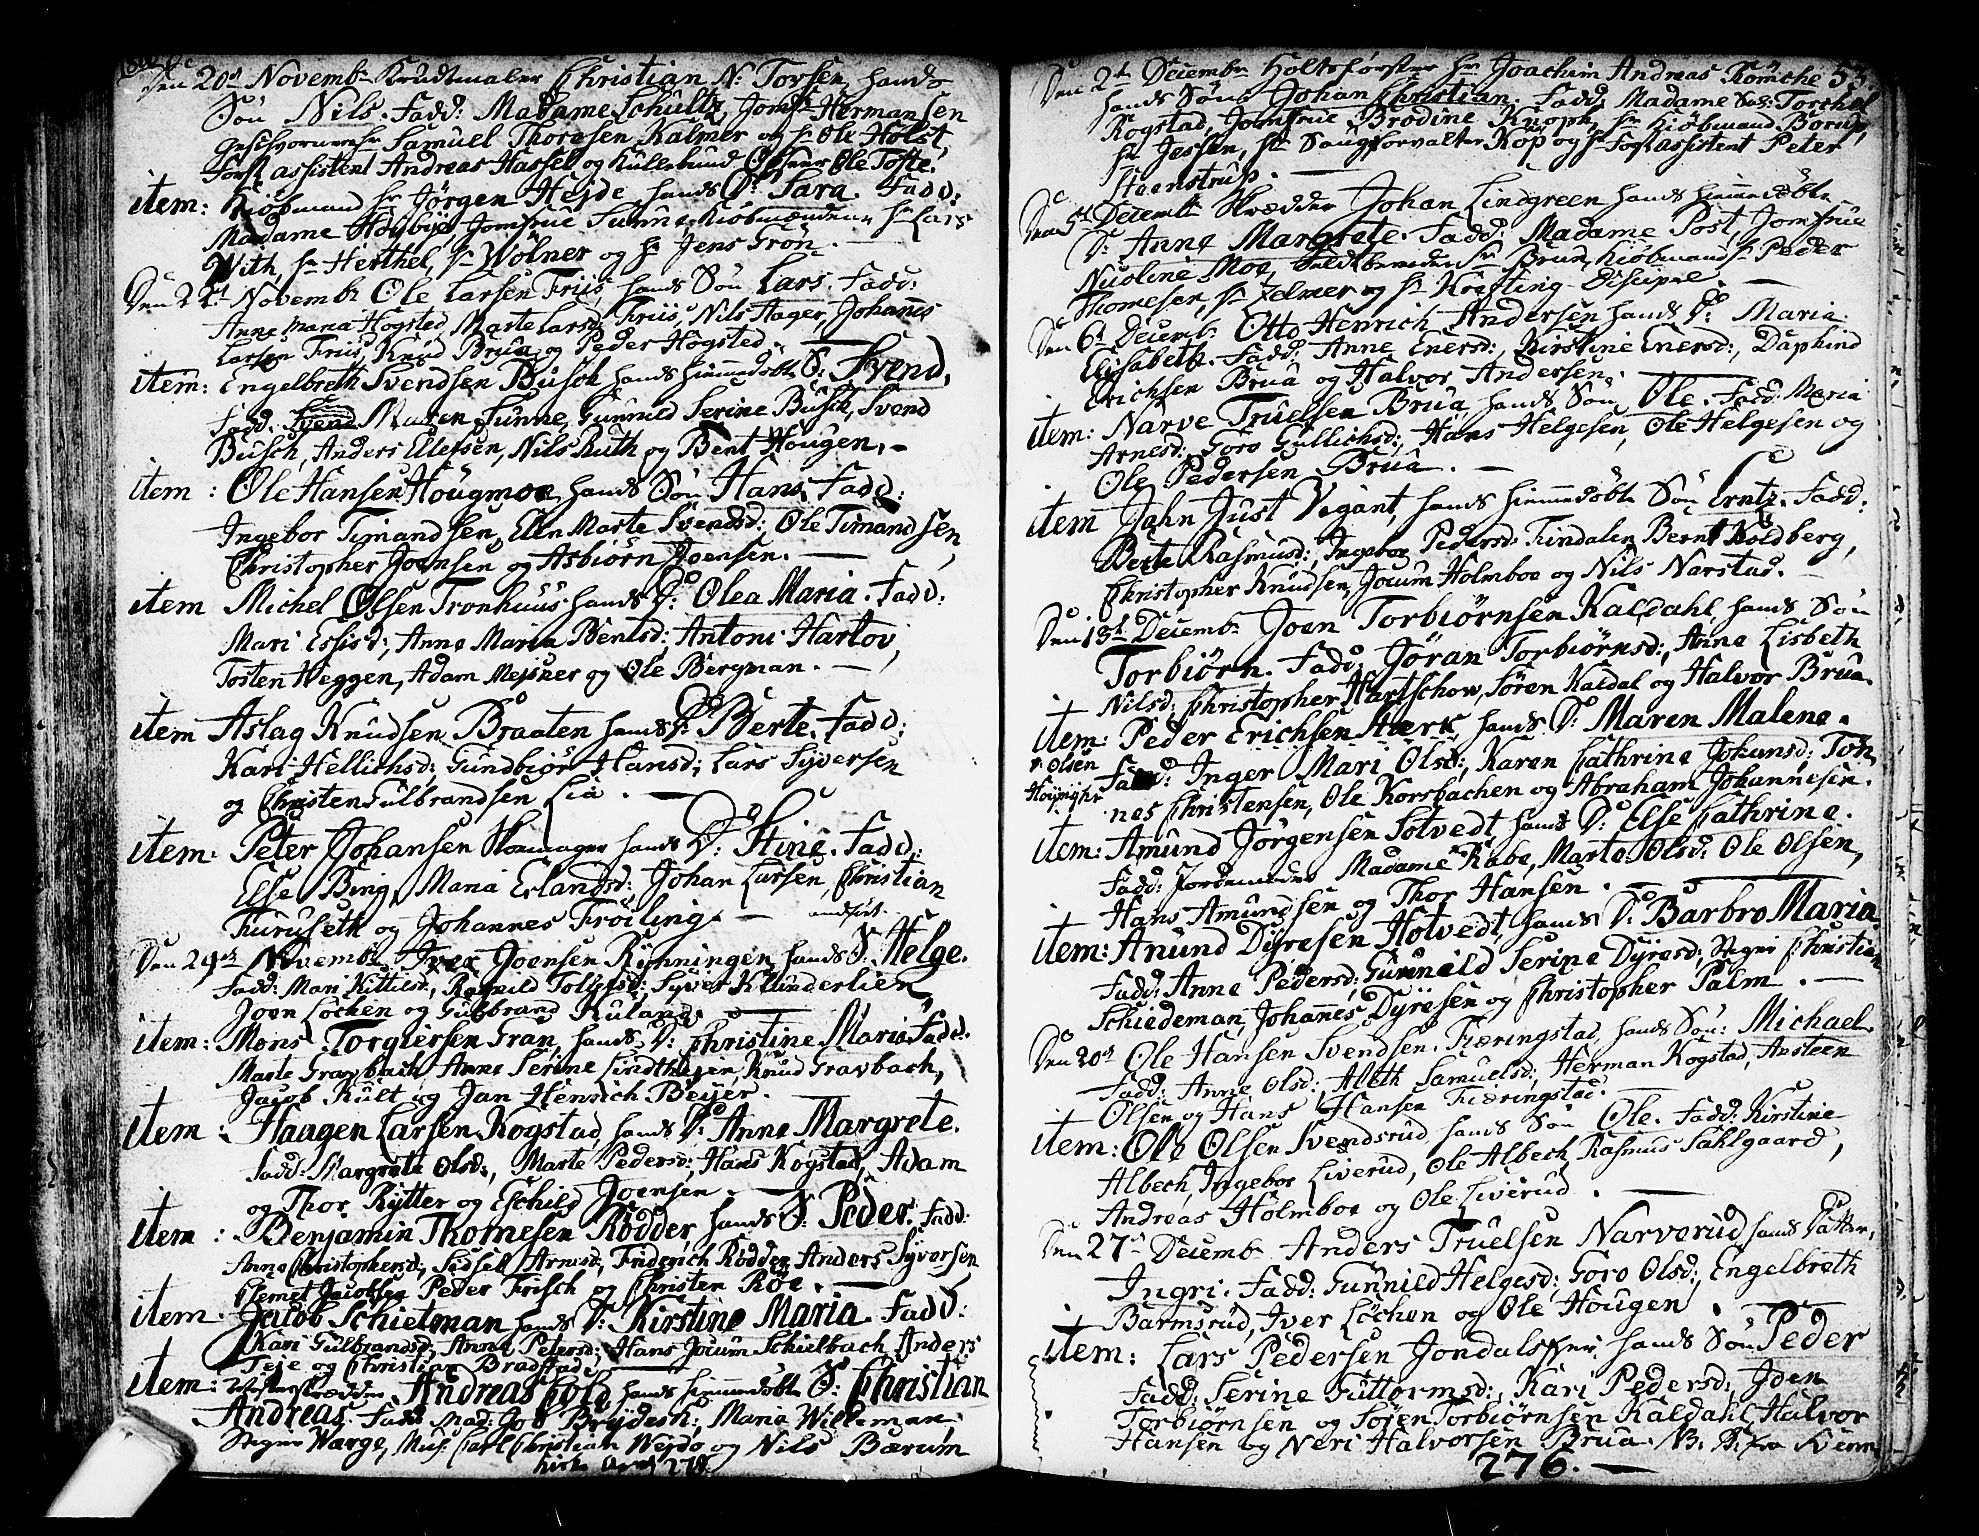 Den 20de Novembr Krudtmaler Christian N: Torsen hands
Søn Nils. Fadd: Madame Schultz, Jomfr Hermansen
Geschvorneren Hr Samuel Thoresen Kalmer og Hr Ole Holst,
Forst assistent Andreas Hassel og Kullebund Ole Tofte.
item: Kiøbmand Hr Jørgen Hejde hands D: Sara. Fadd:
Madame Høybye, Jomfrue Sunne, Kiøbmændene Hr Lars
With, Hr Herthel, Hr Wølner og Hr Jens Grøn.
Den 22de Novembr Ole Larsen Friis, hands Søn Lars. Fadd:
Anne Maria Hogsted, Marte Larsd: Friis, Nils Aager, Johannes
Larsen Friis, Knud Brua og Peder Hogsted.
item: Engelbreth Svendsen Busch hands hiemmedøbte S: Svend,
Fadd: Maren Sunne, Gunnild Serine Busch, Svend
Busch, Anders Ellefsen, Nils Ruth og Bent Hougen. -
item: Ole Hansen Hougmoe hands Søn Hans. Fadd:
Ingebor Timandsen, Ellen Marte Svendsd: Ole Timandsen,
Christopher Joensen og Asbiørn Joensen. —
item Michel Olsen Tronhuus hands D: Olea Maria. Fadd:
Mari Essisd:, Anne Maria Bentsd:, Antoni Hartov,
Tosten Heggen, Adam Mejsner og Ole Bergman. —
item Aslag Knudsen Braaten hands D: Berte. Fadd:
Kari Hellichsd: Gundbiør Hansd:, Lars Syversen
og Christen Gulbrandsen Lia. —
item: Peter Johansen Skomager hands D: Stine. Fadd:
Else Bing, Maria Erlandsd: Johan Larsen, Christian
Furuseth og Johannes Frøiling. —
Den 29de Novembr Iver Joensen Rynningen hands S: Helge.
Fadd: Mari Kittilsd:, Ragnild Tolefsd:, Syver Klunderlien
Joen Løchen og Gulbrand Ruland.
item: Mons Torgiersen Gran, hands D: Christine Maria Fadd:
Marte Gravbach, Anne Serine Lindthejen, Knud Gravbach,
Jacob Kult og Jan Henrich Beijer.
item: Haagen Larsen Kogstad hands D: Anne Margrete.
Fadd: Margrete Olsd:, Marte Pedersd:, Hans Kogstad, Adam
og Thor Rytter og Eschild Joensen. —
item: Benjamin Thomesen Rødder, hands S: Peder. Fadd:
Anne Christophersd:, Sidsel Arnesd:, Friderich Rødder, Anders Syversen
Clemet Jacobsen, Peder Frisch og Christen Roe. —
item. Jacob Schietman hands D: Kirstine Maria. Fadd:
Kari Gulbrandsd:, Anne Petersd:, Hans Jocum Schielbach, Anders
Teje og Christian Bradstad. —
item: Andreas Cold hands hiemmedøbte S: Christian
Andreas. Fadd: Mad: Job Brydesk:, Maria Willeman
Signe Warge, Mus: Carl Christian Werdo og Nils Bærum
Den 2de Decembr Holtsførster Hr Joachim Andreas Rømche 53.
hands Søn Johan Christian. Fadd: Madame Torchel
Kogstad, Jomfrue Brodine Knoph, Hr Kiøbmand Borup,
Hr Jessen, Hr Saugforvalter Kop og Hr Forst assistent Peter
Steenstrup. —
Den 5te Decembr Skrædder Johan Lindgreen hands hiemmedøbte
D: Anne Margrete. Fadd: Madame Post, Jomfrue
Nicoline Moe, Hr Brun, Kiøbmand Hr Peder
Thomesen, Hr Zelmer og Hr Kræfting Discipel. —
Den 6te Decembr Otto Henrich Andersen hands D: Maria
Elisabeth. Fadd: Anne Enersd:, Kirstine Enersd:, Daphind
Erichsen Brua og Halvor Andersen.
item: Narve Truelsen Brua, hands Søn Ole. Fadd: Maria
Arnesd: Goro Gullichsd:, Hans Helgesen, Ole Helgesen og
Ole Pedersen Brua. —
item Jahn Just Vigant, hands hiemmedøbte Søn Erntz. Fadd:
Berte Rasmusd:, Ingebor Pedersd: Tindalen, Bernt Koldberg,
Christopher Knudsen, Jocum Holmboe og Nils Narstad. —
Den 13de Decembr Joen Torbiørnsen Kaldahl, hands Søn
Torbiørn. Fadd: Jøran Torbiørnsd:, Anne Lisbeth
Nilsd: Christopher Hartschow, Søren Kaldal og Halvor Brua.
item: Peder Erichsen Stærk, hands D: Maren Malene.
Fadd: Inger Mari Olsd:, Karen Cathrine Johansd: Ton
nes Christensen, Ole Korsbachen og Abraham Johannesen.
item: Amund Jørgensen Sotvedt hands D: Else Cathrine.
Fadd: Jordemoder Madame Rabe, Marte Olsd: Ole Olsen,
Hans Amundsen og Thor Hansen. —
item: Anund Dyresen Hotvedt, hands D: Barbro Maria
Fadd: Anne Pedersd: Gunnild Serine Dyresd:, Signe Christian
Schiedeman, Johannes Dyresen og Christopher Palm. —
Den 20de Ole Hansen Svendsen Fiæringstad, hands Søn: Michael
Fadd: Anne Olsd: Aleth Samuelsd:, Herman Kogstad, Ansteen
Olsen og Hans Hansen Fiæringstad.
item: Ole Olsen Svendsrud hands Søn Ole. Fadd: Kirstine
Albech, Ingebor Liverud, Ole Albech, Rasmus Sahlgaard,
Andreas Holmboe og Ole Liverud. —
Den 27de Decembr Anders Truelsen Narverud hands Datter,
Ingri. Fadd: Gunnild Helgesd: Goro Olsd:, Engelbreth
Barmsrud, Iver Løchen og Ole Hougen.
item: Lars Pedersen Jondalsker: hands Søn Peder
Fadd: Serine Guttormsd:, Kari Pedersd:, Joen
Torbiørnsen og Soren Torbiørnsen Kaldahl, Halvor
Hansen og Neri Halvorsen Brua.
276. —